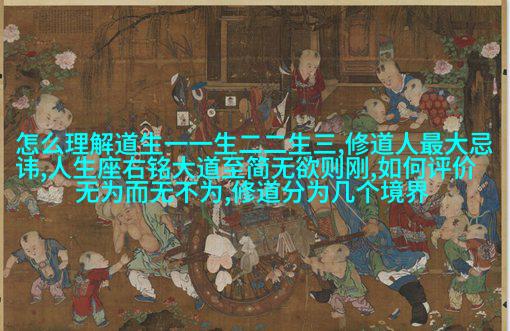 怎么理解道生一一生二二生三,修道人最大忌
讳,人生座右铭大道至简无欲则刚,如何评价
无为而无不为,修道分为几个境界